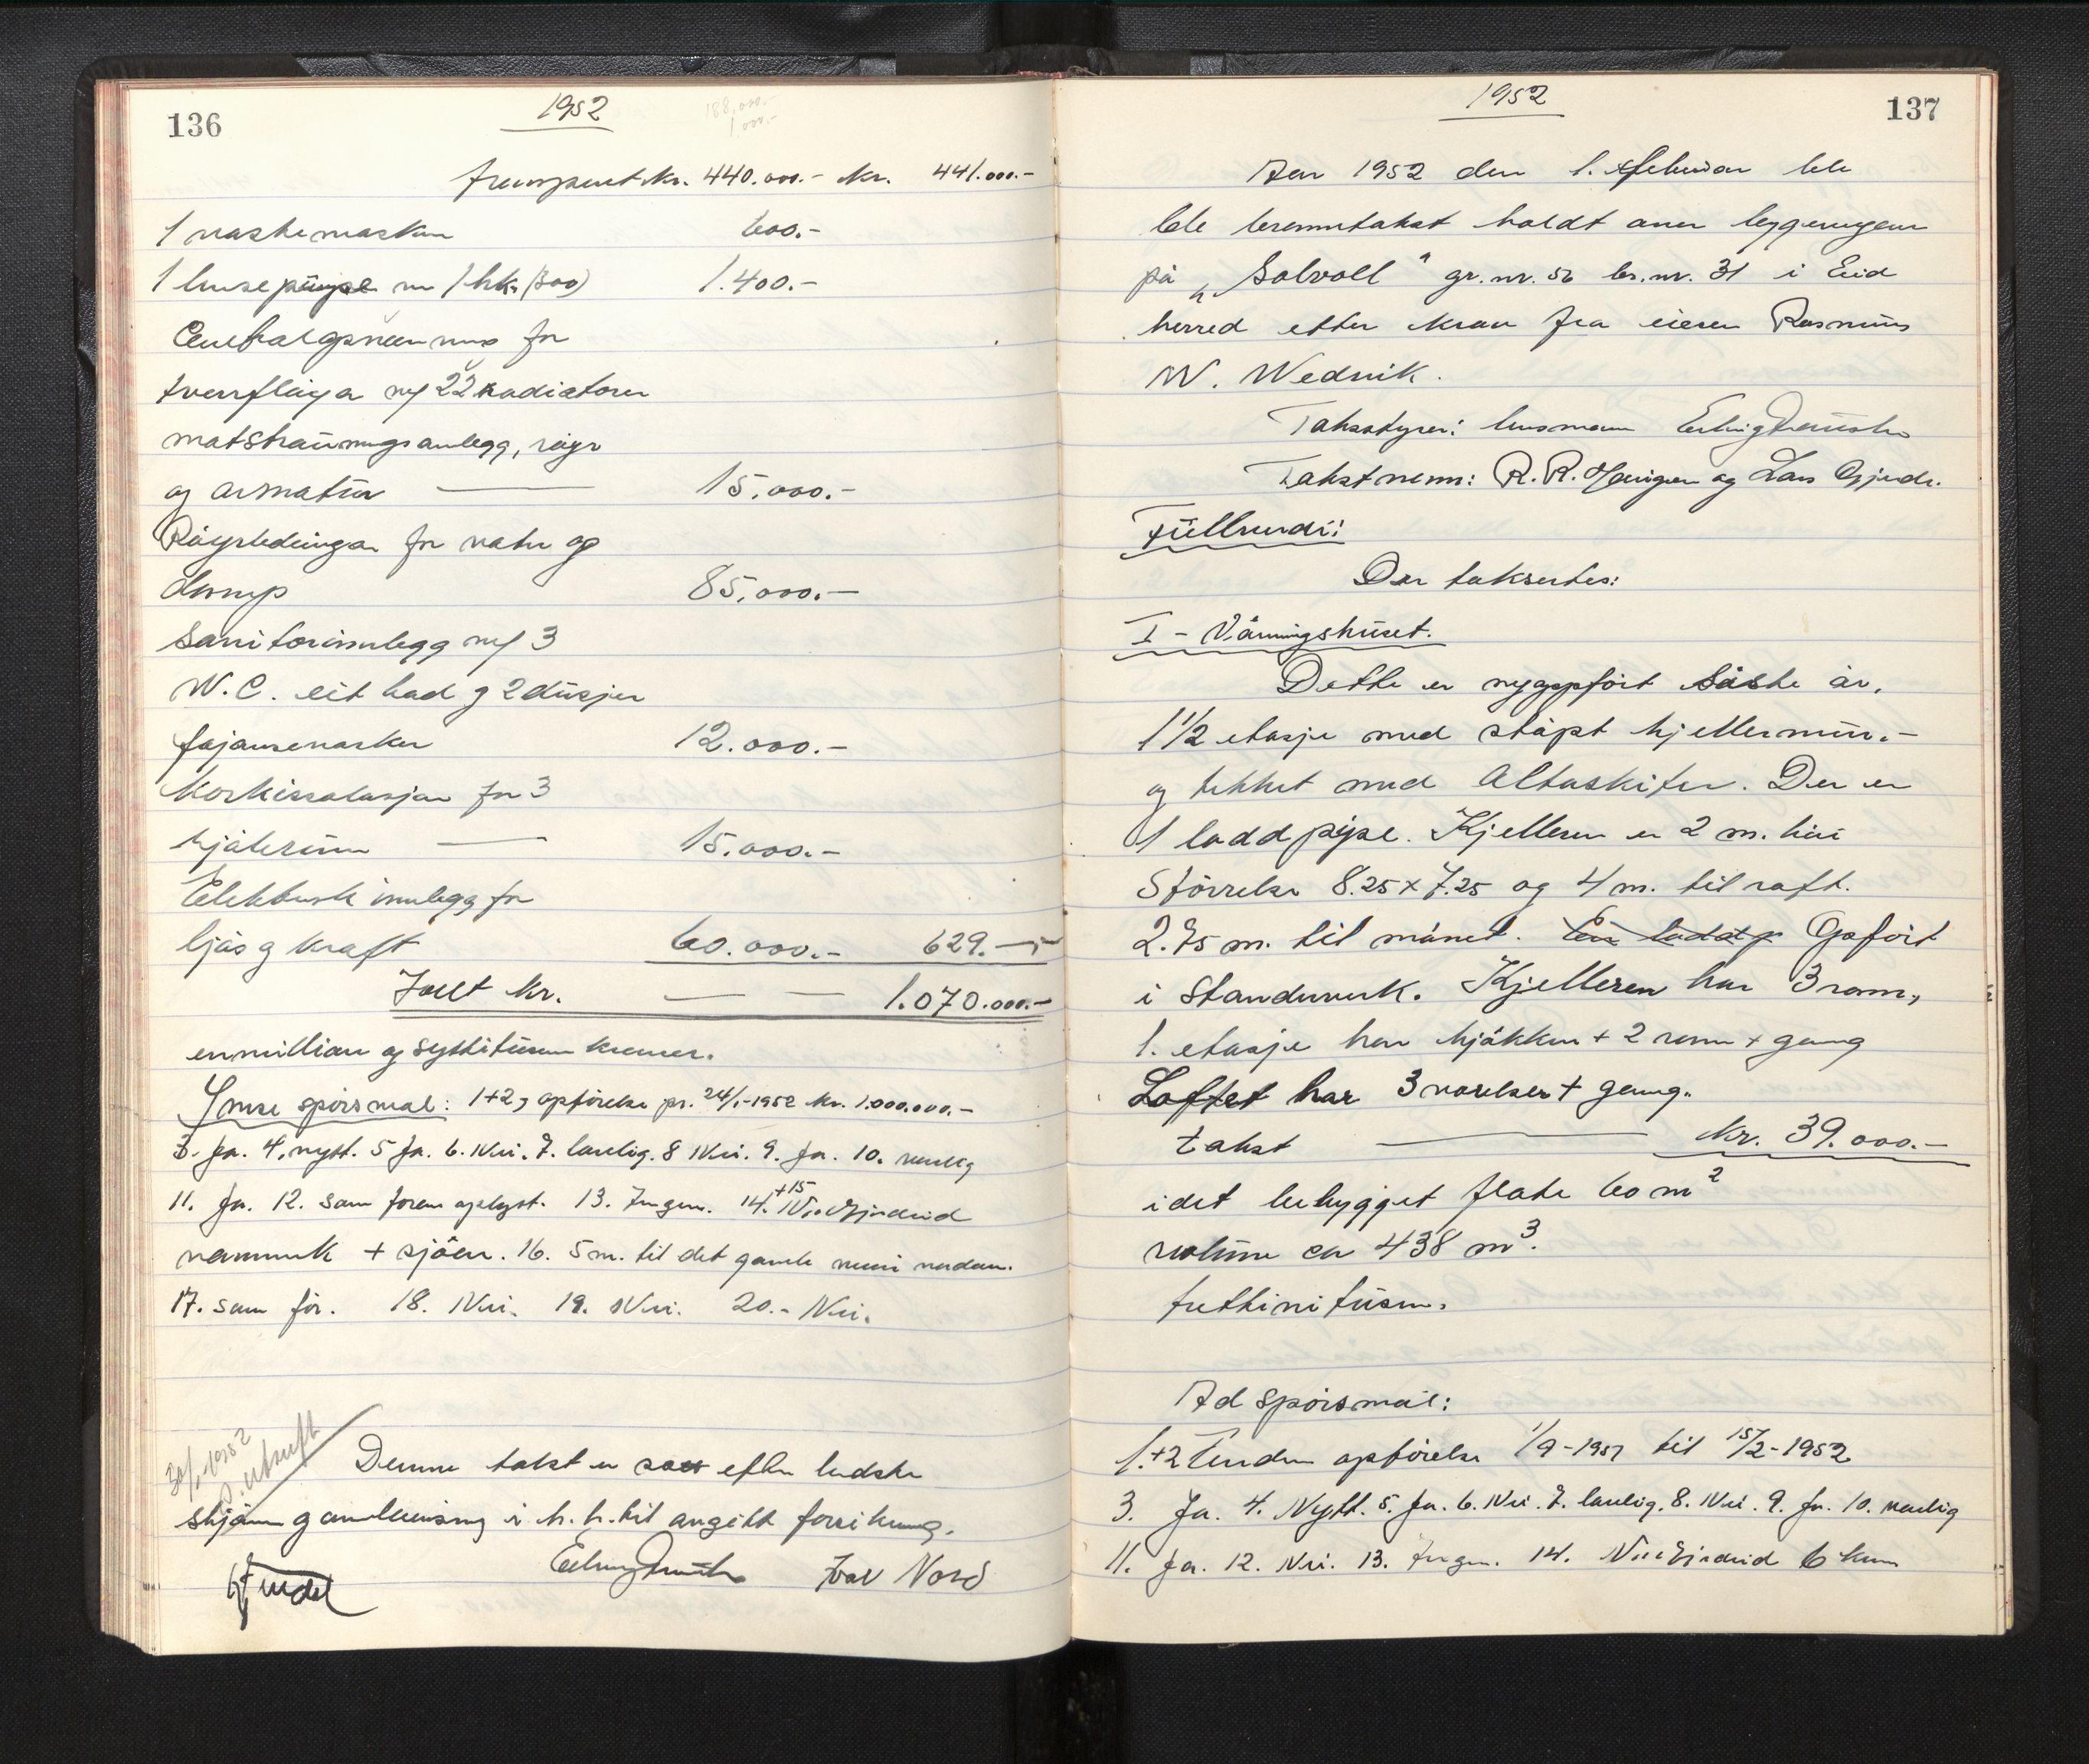 136
1952
188,000.-
1,000.-
frampart kr. 440.000.- kr. 441.000.-
1 vaskemaskin 600.-
1 linsepumpe m/1hk. (300) 1.400.-
Centralgsvarming for
tverrfløya m/ 22 radiatorer
matstraumingsanlegg, røyr
og armatur — 15.000.-
Røyrledninga for vatn og
damp 85.000.-
Sanitærinnlegg m/ 3
W.C. eit bad og 2 dusjer
fajansevasker 12.000.-
Korkissolasjon for 3
kjølerum — 15.000.-
Elektrisk innlegg for
ljos og kraft 60.000.- 629.—
Ialt kr. — — 1.070.000.-
en million og syttitusen kroner.
Ymse spørsmål: 1+2, oppførelse pr. 24/1-1952 kr. 1.000.000.-
3. Ja. 4. nytt. 5 Ja. 6. Nei. 7. lovlig. 8 Nei. 9. Ja. 10. vanlig
11. Ja. 12. som foran oplyst. 13. Ingen. 14.+15 Nordfjordeid
vannverk + sjøen. 16. 5 m. til det gamle meieri nordan.
17. som før. 18. Nei. 19. Nei. 20.- Nei.
30/1-1952
s. utskrift
Denne takst er satt efter bedste
skjønn og i h.h. til angitt forsikring.
Ivar Nord
1952
137
Aar 1952 den 1. februar ble
ble branntakst holdt over bygningen
på „Solvoll" gr.nr. 56 br.nr. 31 i Eid
herred etter krav fra eieren Rasmus
W. Wedvik.
Takststyrer: lensmann
Takstmenn: R.R. Haugen og Lars Gjerde.
Fullverdi:
Der takseres:
I - Våningshuset.
Dette er nyoppført siste år,
1 1/2 etasje med støpt kjellermur.-
og tekket med Altaskifer. Der er
1 lodd pipe. Kjelleren er 2 m. høi
Størrelse 8.25 x 7.25 og 4 m. til raft.
2.75 m. til mønet. En loddp Opført
i standerverk. Kjelleren har 3 rom,
1. etasje har kjøkken + 2 rom + gang
Loftet har 3 værelser + gang.
takst — kr. 39.000.-
idet bebygget flate 60 m2
volum ca 438 m3.
trettinitusen.
Ad spørsmål:
1.+2 Under opførelse 1/9-1951 til 15/2-1952
3. Ja. 4. Nytt. 5. Ja. 6. Nei. 7. lovlig. 8. Nei. 9. Ja. 10. vanlig
11. Ja. 12. Nei. 13. Ingen. 14. Nordfjordeid 6 km